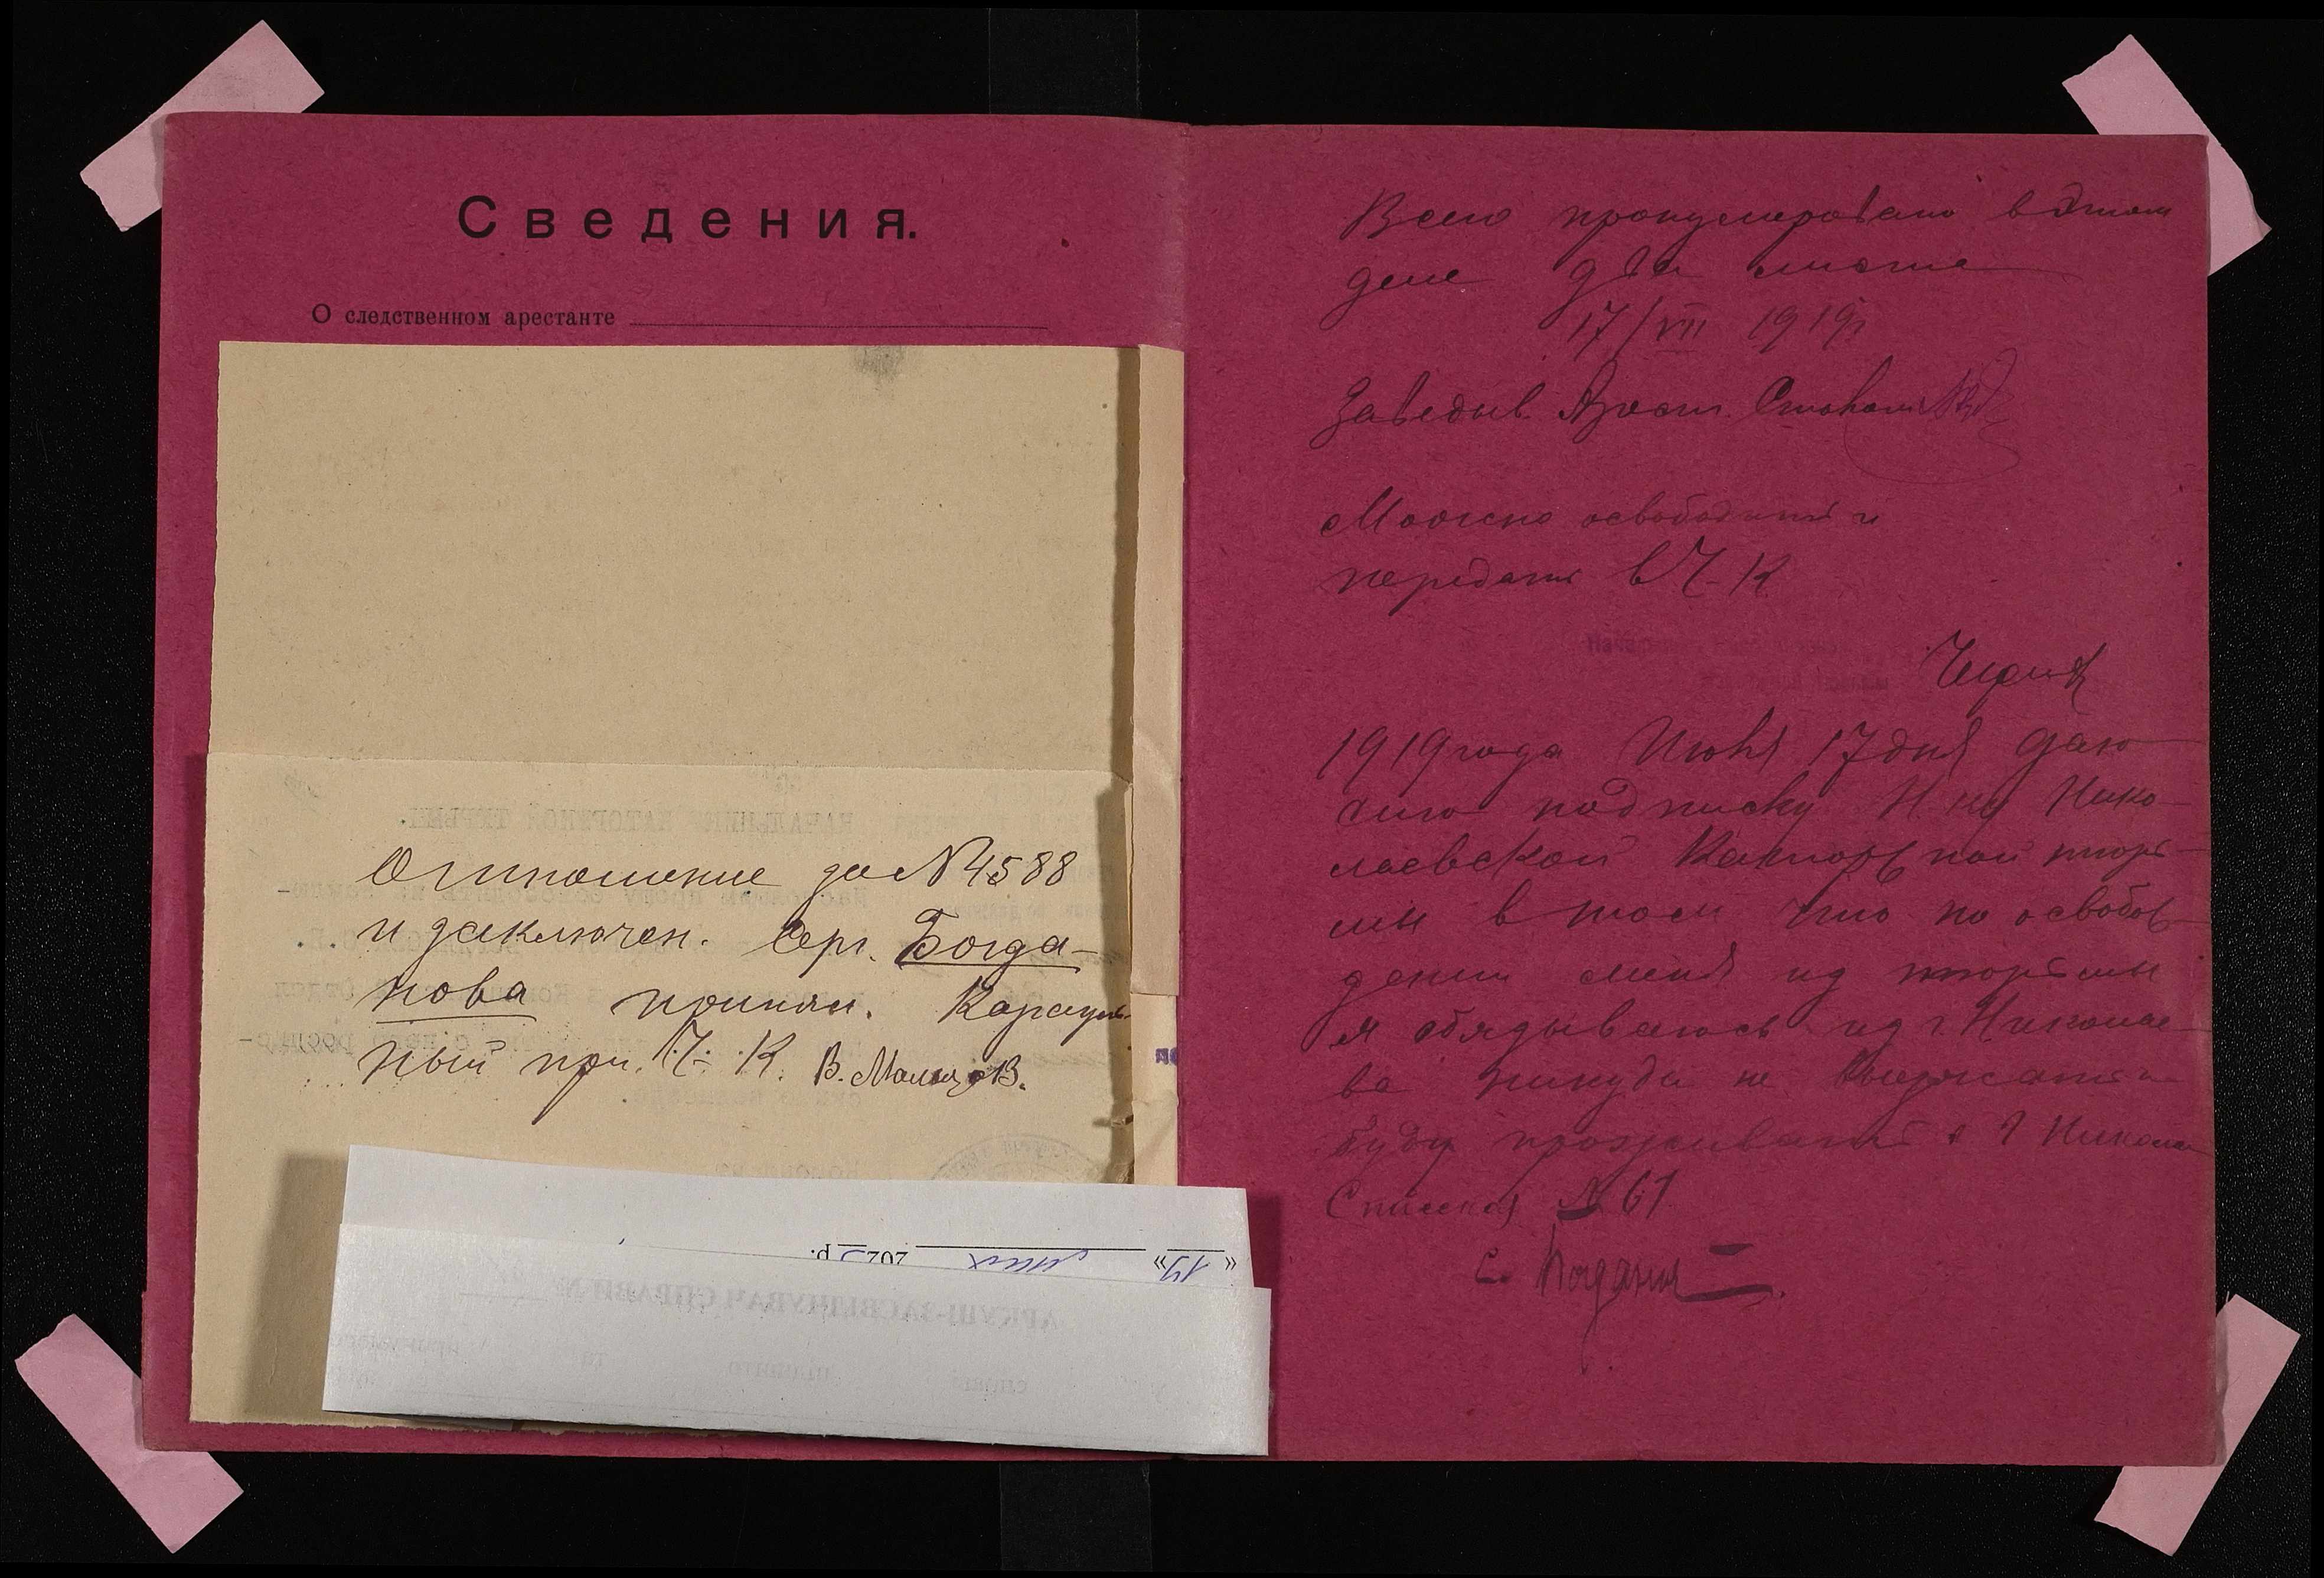 Сведения.
О следственном арестанте
Отношение за № 4588
и заключен. Серг. Богда-
нова принял. Караул-
ный при. Ч. К. В. Мальцов.
"14" 202 р.
Всего пронумеровано в этом
деле два листа
17/VII 1919 г
Заведыв. Арест.
Можно освободить и
передать в Ч-К
1919 года Июля 17 дня даю
сию подписку Н-ку Нико-
лаевской Каторжной тюрь-
мы в том что по освобож-
дении меня из тюрьмы
я обязываюсь из г. Никола-
ева никуда не выезжать и
буду проживать в г Никола
Спасская № 61
С. Богданов